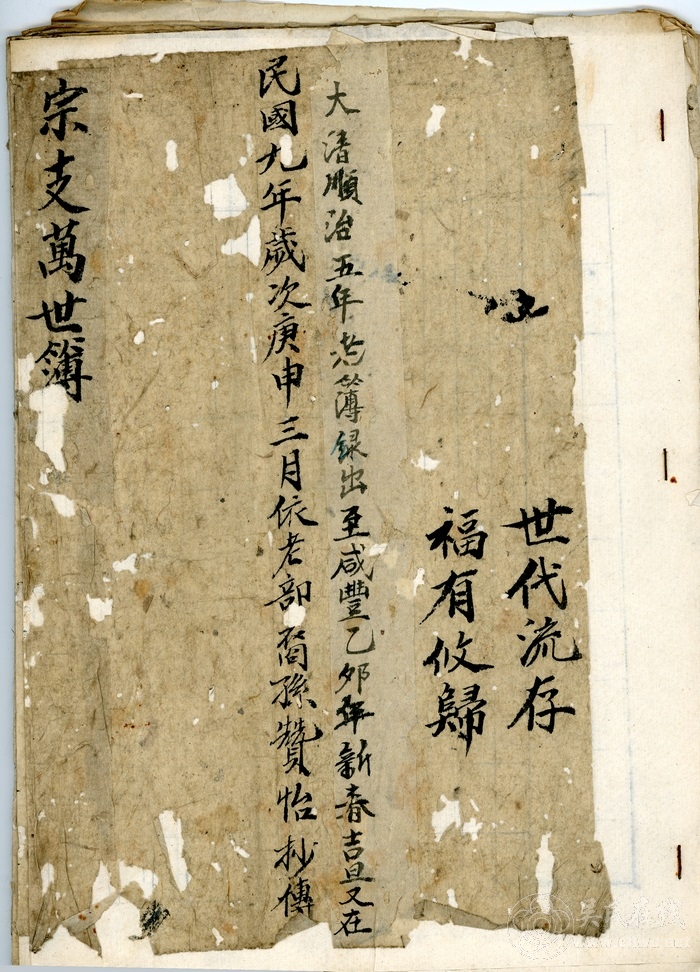 世代流存
福有攸歸
大清順治五年老簿録出至咸豐乙夘年新春吉旦又在
民國九年歲次庚申三月依老部裔孫贊怡抄傳
宗支萬世簿